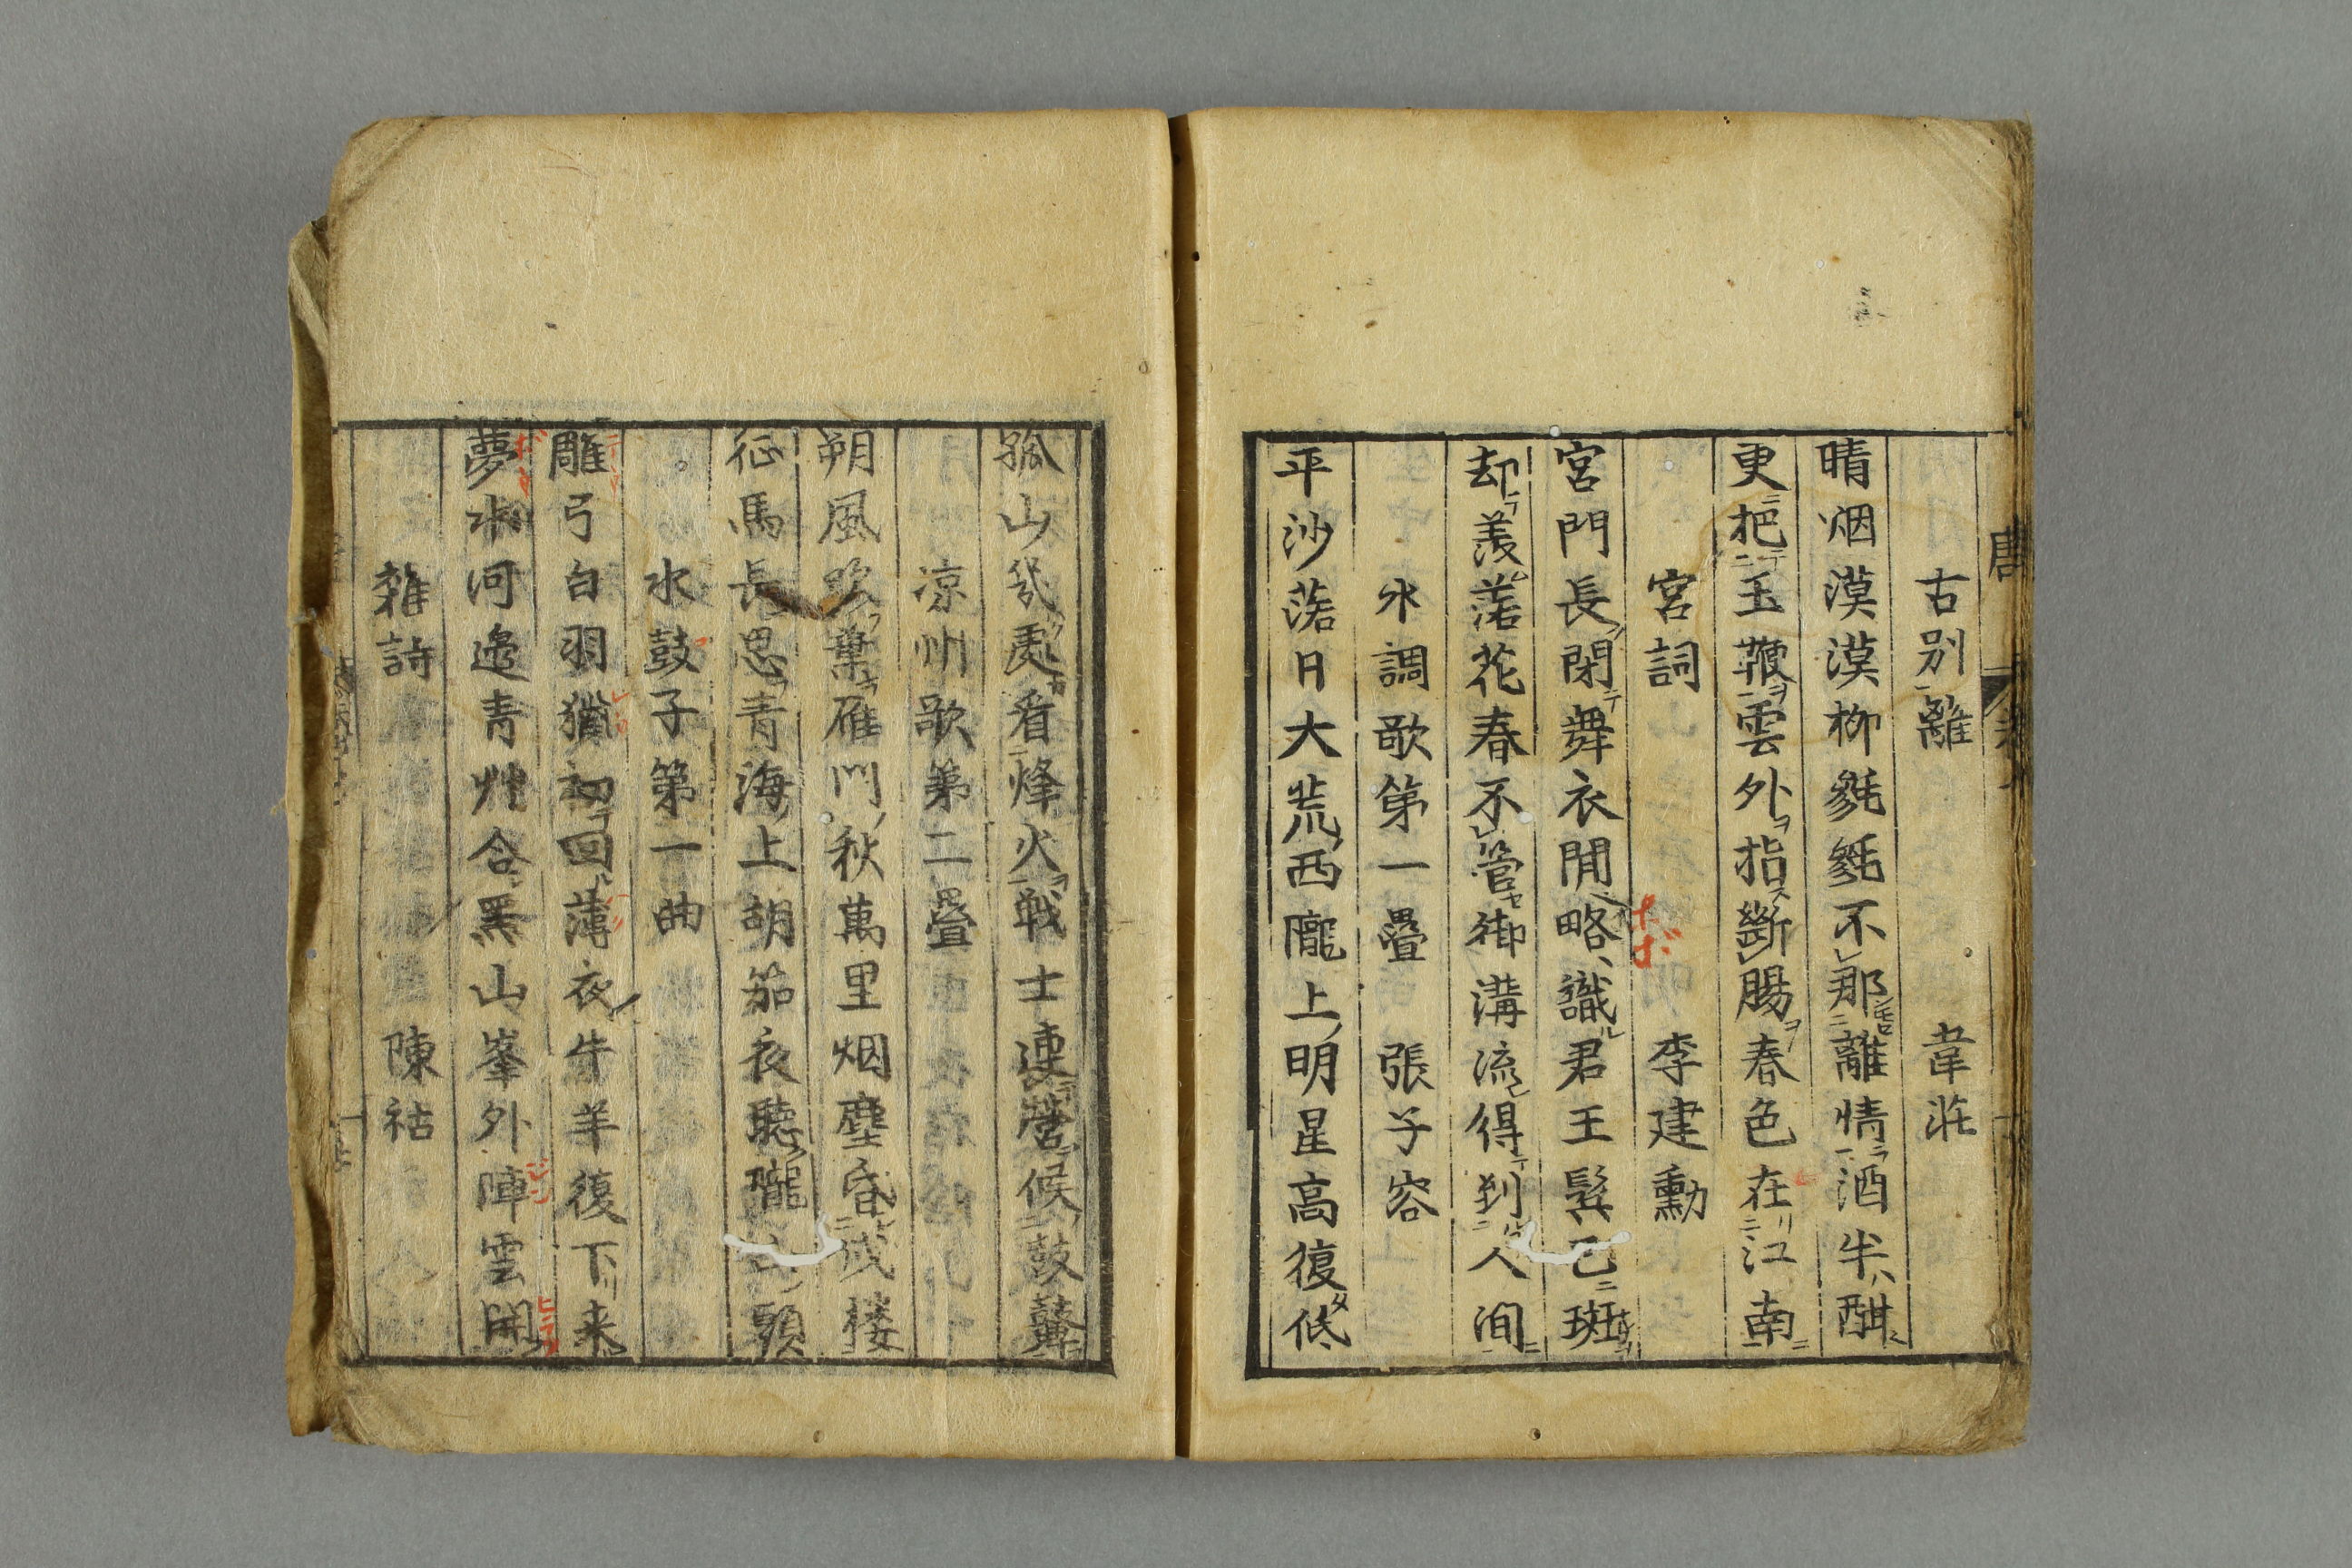 古別離　韋莊
晴烟漠漠柳毿毿不那離情酒半酣
更把玉鞭雲外指斷腸春色在江南
宮詞　李建勳
宮門長閉舞衣閒略識君王鬂已斑
却羨落花春不管御溝流得到人間
水調歌第一疊　張子容
平沙落日大荒西隴上明星高復低
孤山幾処看烽火戦士連営候鼓鼙
凉州歌第二疊
朔風吹葉雁門秋萬里烟塵昏戍楼
征馬長思青海上胡笳夜聴隴山頭
水鼓子第一曲
雕弓白羽獵初回薄夜牛羊復下来
夢水河邊青艸合黑山峯外陣雲開
雜詩　陳祐